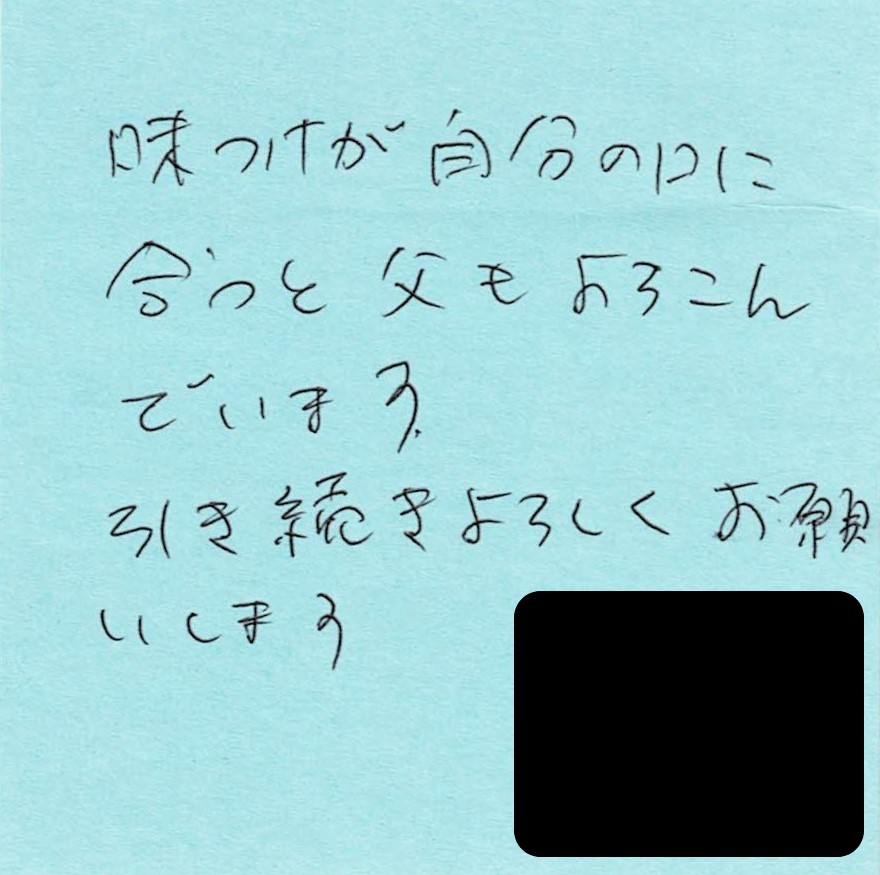 味つけが自分の口に
合うと父もよろこん
でいます
引き続きよろしくお願
いします